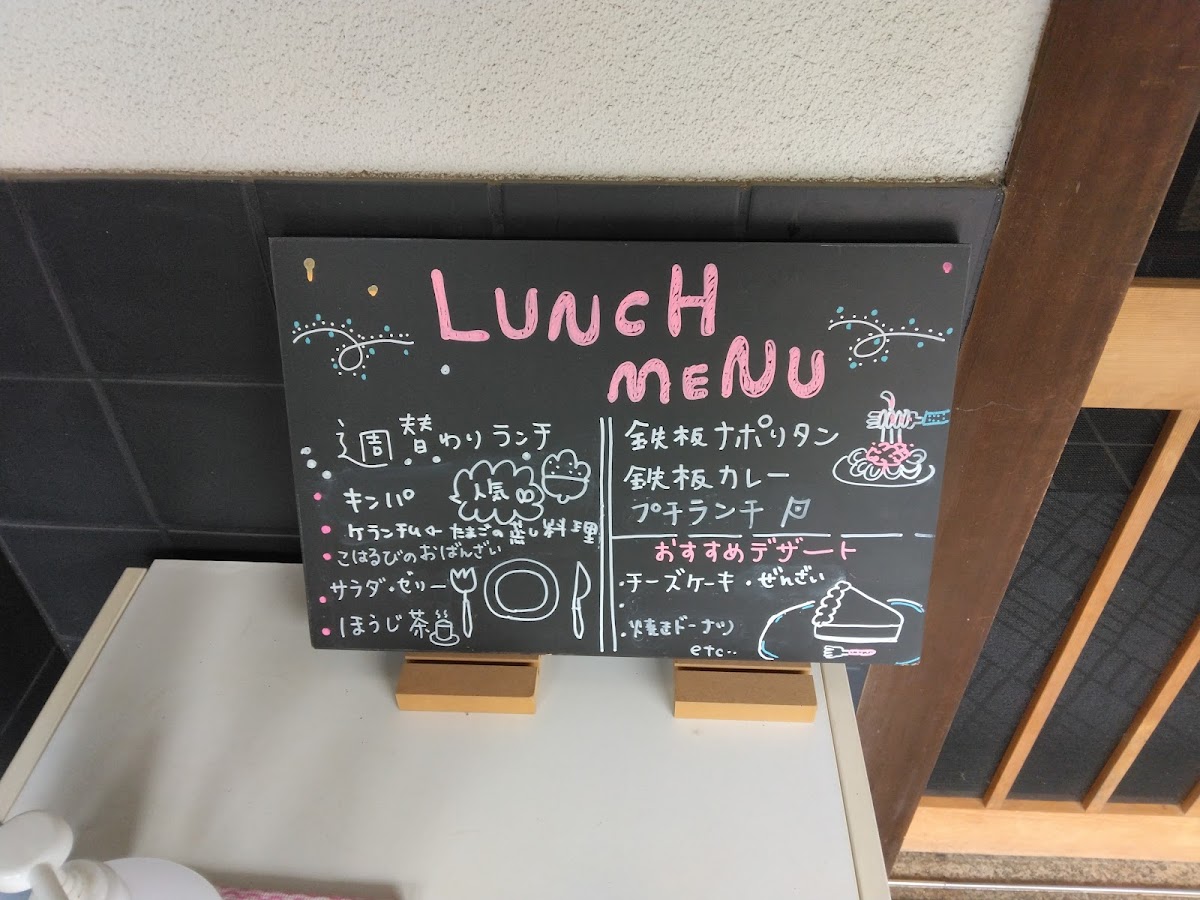 LUNCH
MENU
週替わりランチ
人気
キンパ
ケランチム← たまごの蒸し料理
こはるびのおばんざい
サラダ・ゼリー
ほうじ茶
鉄板ナポリタン
鉄板カレー
プチランチ
おすすめデザート
・チーズケーキ ・ぜんざい
・
・焼きドーナツ
etc..